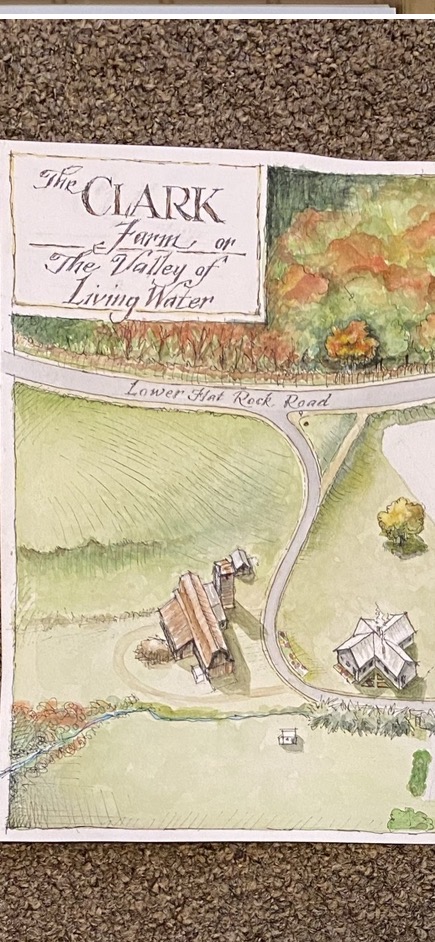 The CLARK
Farm or
The Valley of
Living Water
Lower Flat Rock Road